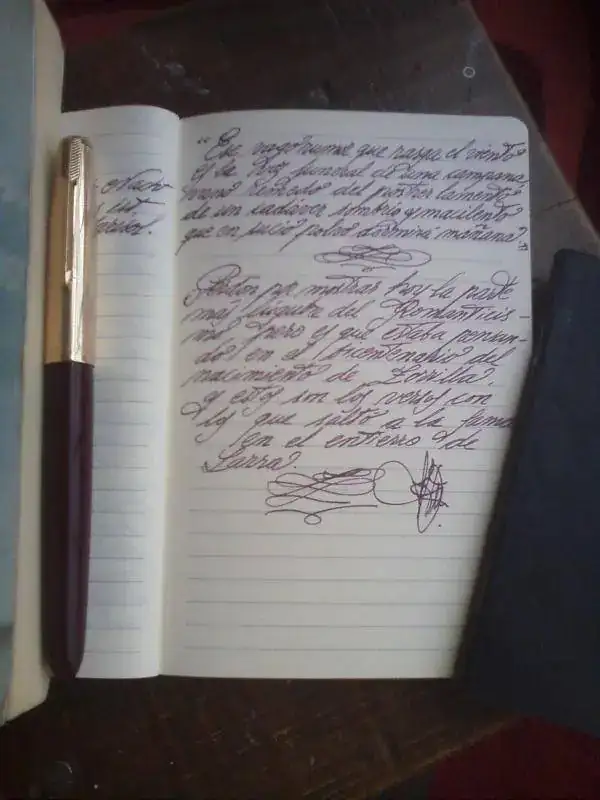 Noche
"Ese vago rumor que rasga el viento
es la voz funeral de una campana,
vano remedo del postrer lamento
de un cadáver sombrío y macilento
que en sucio polvo dormirá mañana"
Perdón por mostrar hoy la parte
mas lúgubre del Romanticis-
mo pero es que estaba pensan-
do en el bicentenario del
nacimiento de Zorrilla,
y estos son los versos con
los que saltó a la fama
en el entierro de
Larra.